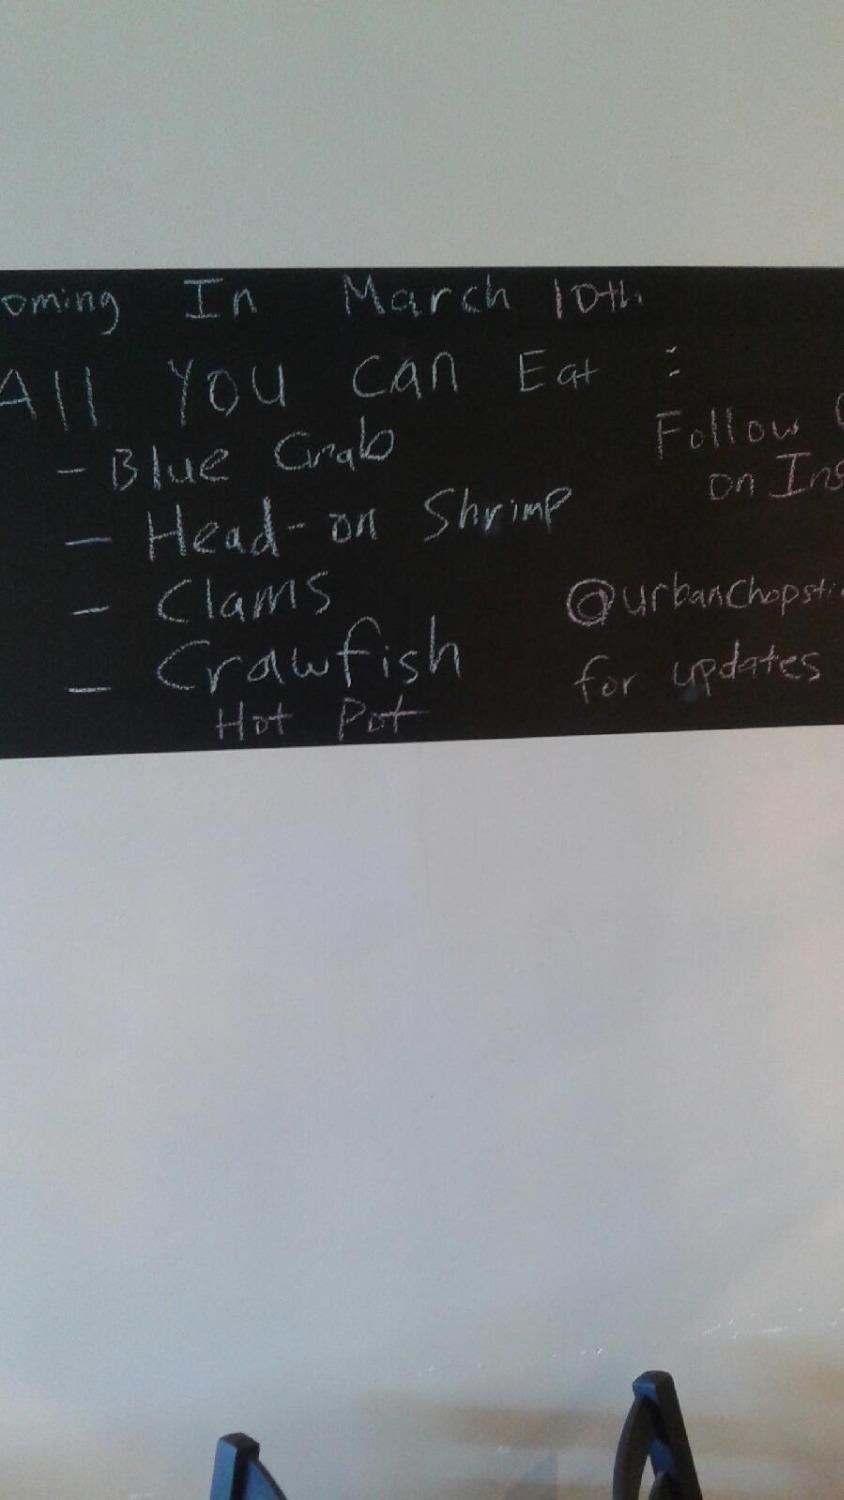 oming In March 10th
All You Can Eat :
- Blue Crab
- Head-on Shrimp
- Clams
- Crawfish
Hot Pot
Follow
on Ins
@urbanchopsti
for updates